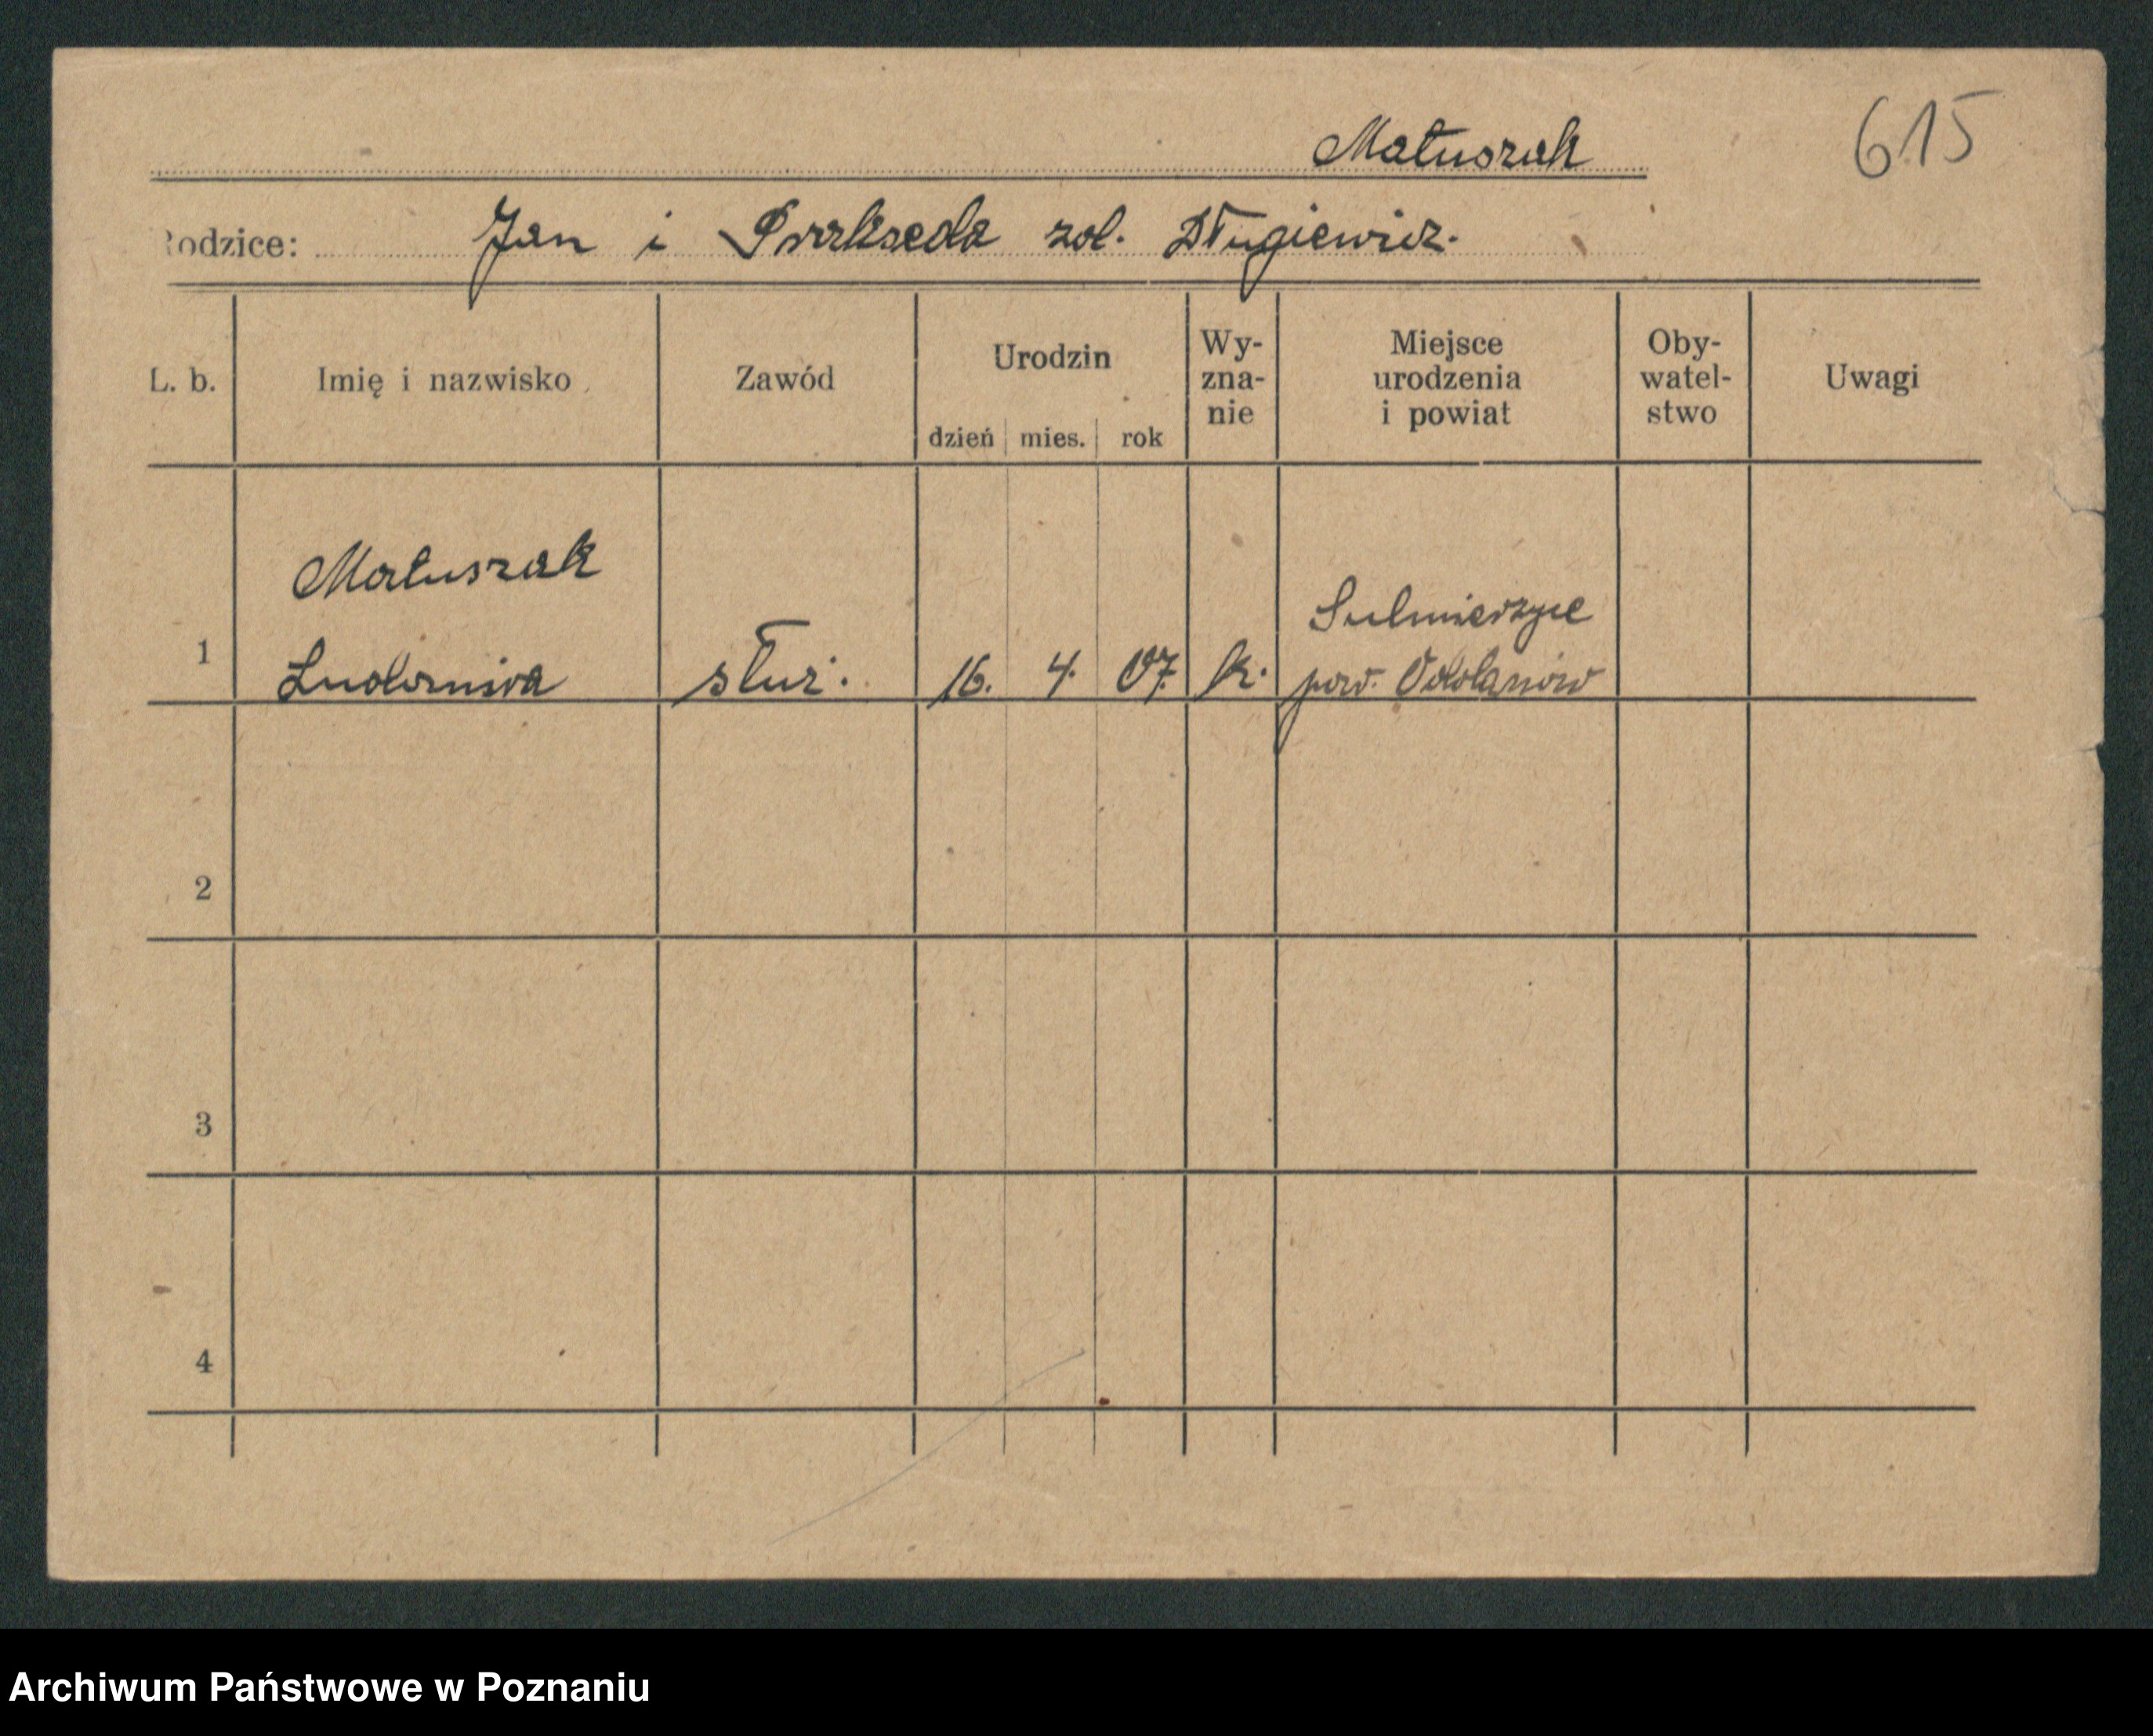 Matuszak
615
Rodzice: Jan i Prakseda zol. Długiewicz.
L. b. Imię i nazwisko Zawód Urodzin dzień mies. rok Wy-zna-nie Miejsce urodzenia i powiat Oby-watel-stwo Uwagi
Matuszak
Sulmierzyce
1 Ludowika służ. 16. 4. 07. k. pow. Odolanów
2
3
4
Archiwum Państwowe w Poznaniu